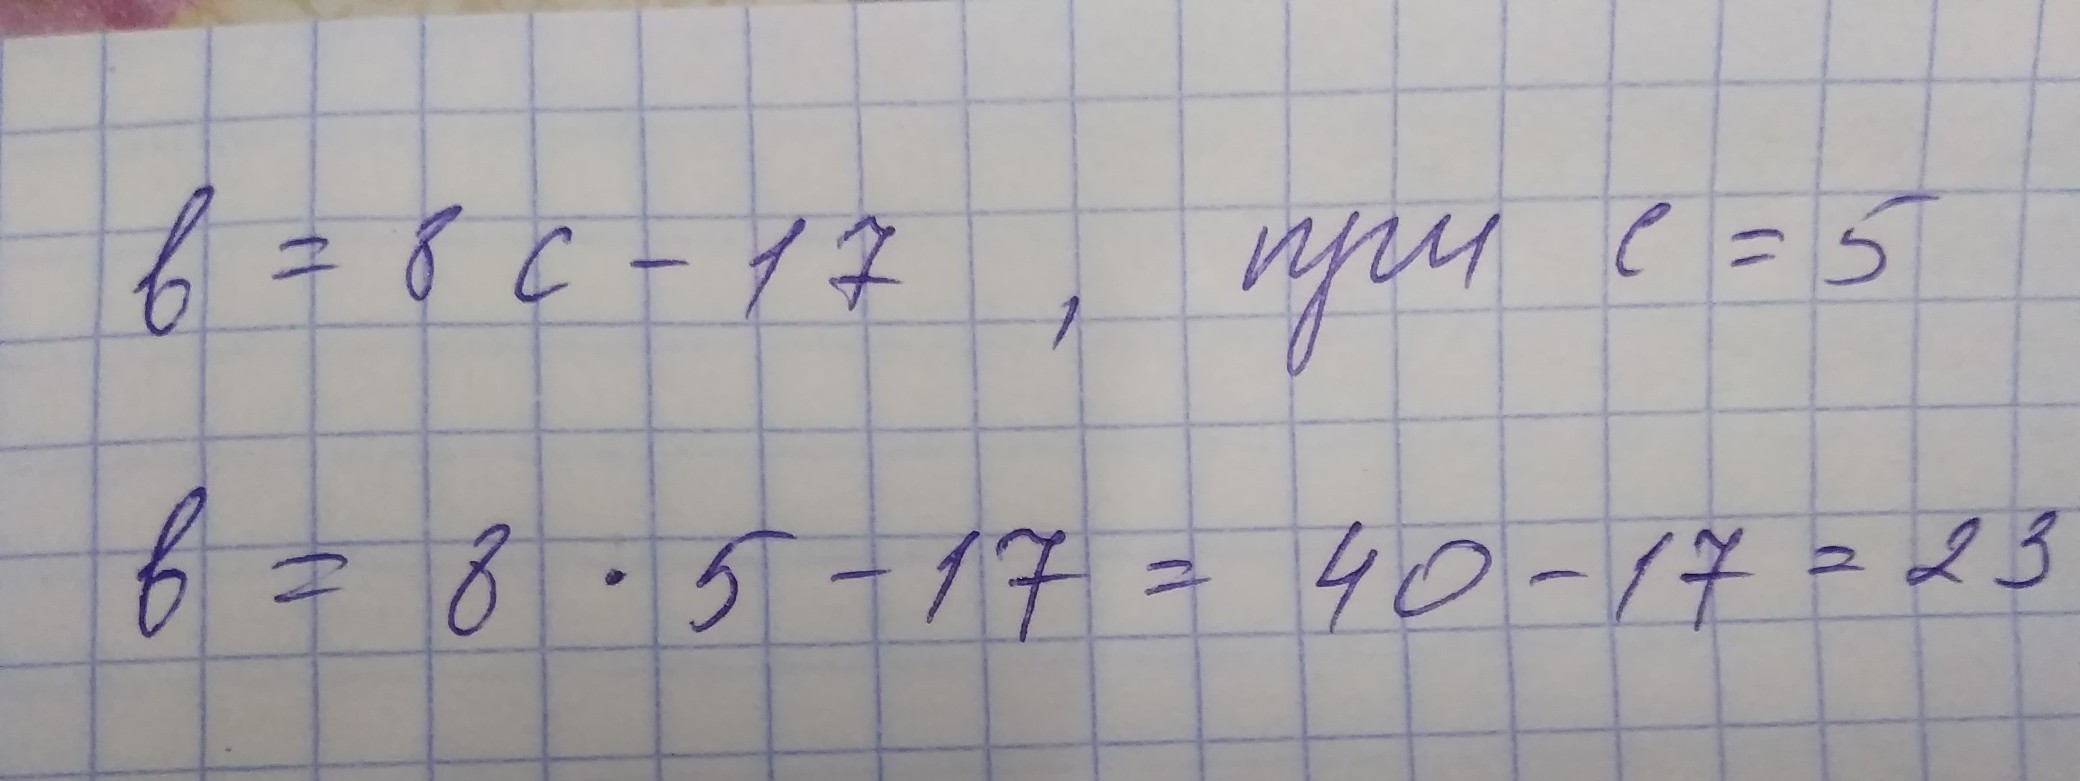 в = 8 с - 17 , при с = 5
в = 8 · 5 - 17 = 40 - 17 = 23